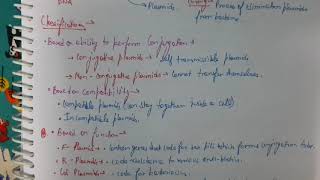 DNA
→ Plasmids.
Process of elimination plasmids
from bacteria
Classification →
• Based on ability to perform Conjugation →
→ Conjugative plasmids → Self transmissible plasmids
→ Non-Conjugative plasmids → Cannot transfer themselves.
• Based on Compatibility →
• Compatible plasmids (can stay together inside a cell)
• Incompatible plasmids.
• Based on function →
• F-Plasmid → Contain genes that code for sex pili which forms conjugation tube.
• R-Plasmids → code resistance to various anti-biotics.
• Col Plasmids → code for bacteriocins.